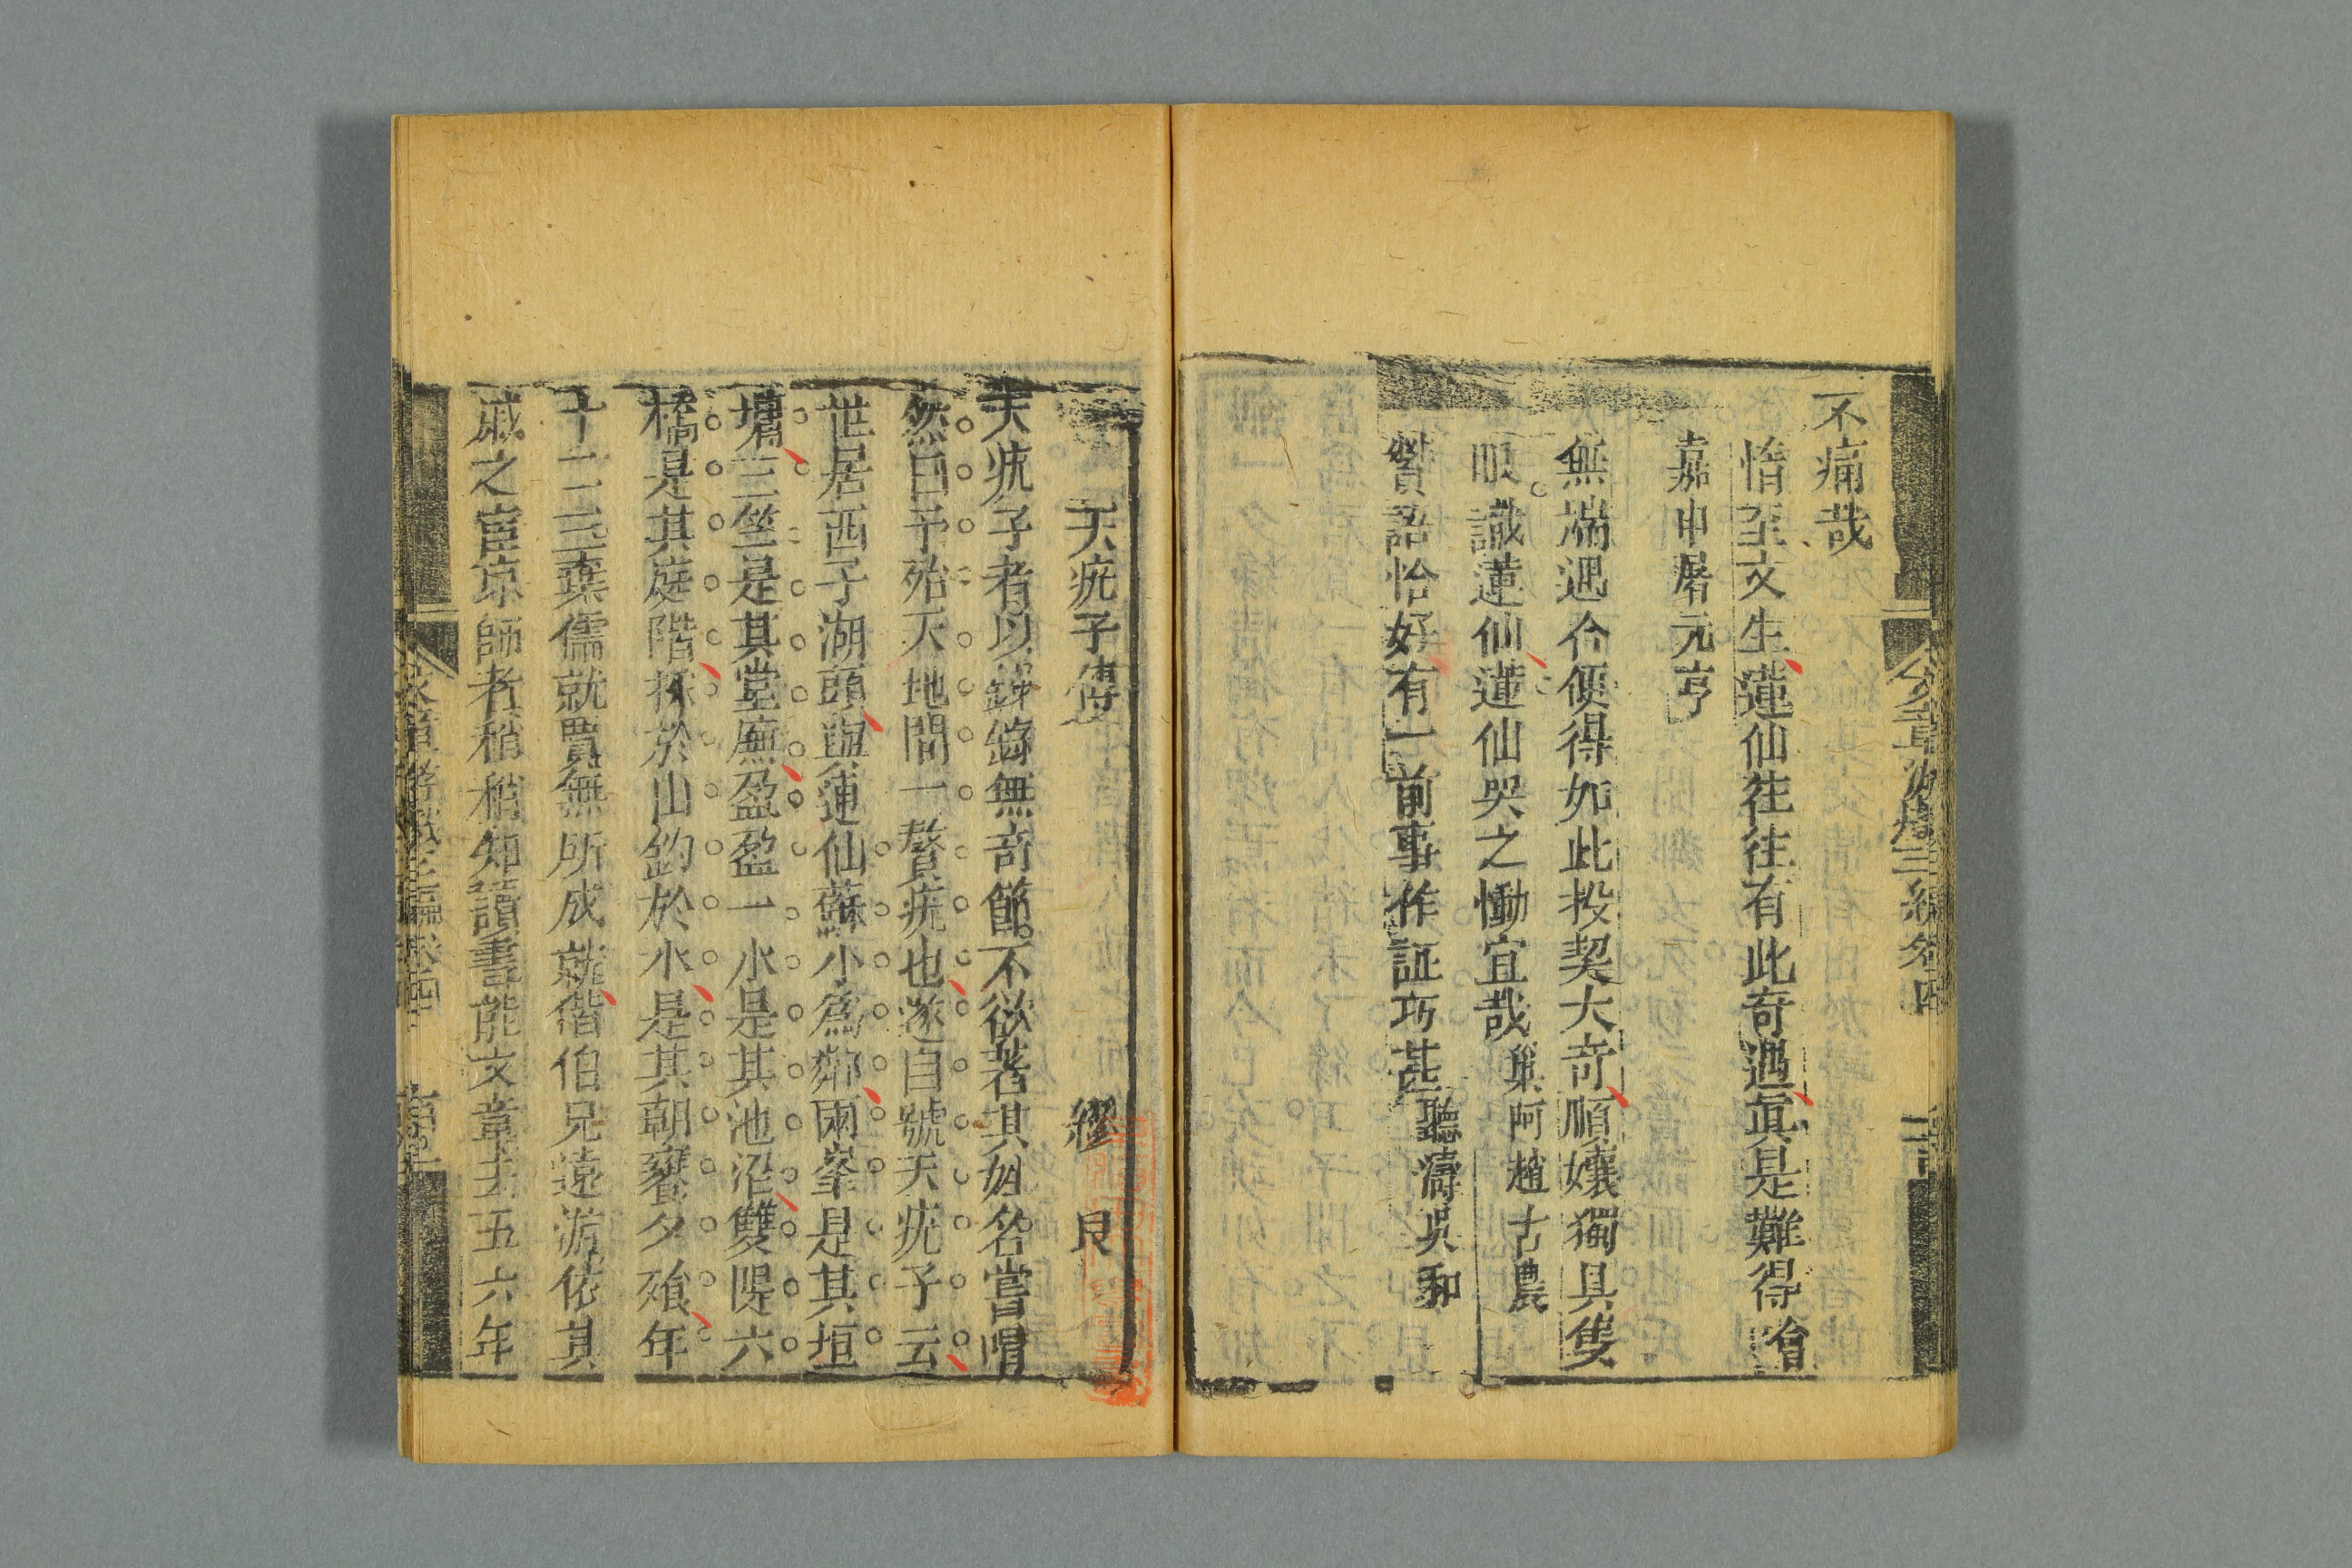 不痛哉
情至文生蓮仙往往有此奇遇眞是難得 會
嘉申屠元亨
無端遇合便得如此投契大奇順孃獨具隻
眼識蓮仙蓮仙哭之慟宜哉 巢阿趙古農
贊語恰好有一前事作証巧甚 聽濤吳和
文章游戲三編卷四
天疣子傳 繆艮
天疣子者以錚錚無奇節不欲著其姓名嘗喟
然曰予殆天地間一贅疣也遂自號天疣子云
世居西子湖頭與蓮仙蘇小爲鄰兩峯是其垣
墉三竺是其堂廡盈盈一水是其池沼雙隄六
橋是其庭階採於山釣於水是其朝饔夕飱年
十二三棄儒就賈無所成就偕伯兄遠游依其
戚之宦京師者稍稍知讀書能文章去五六年
文章游戲三編卷四